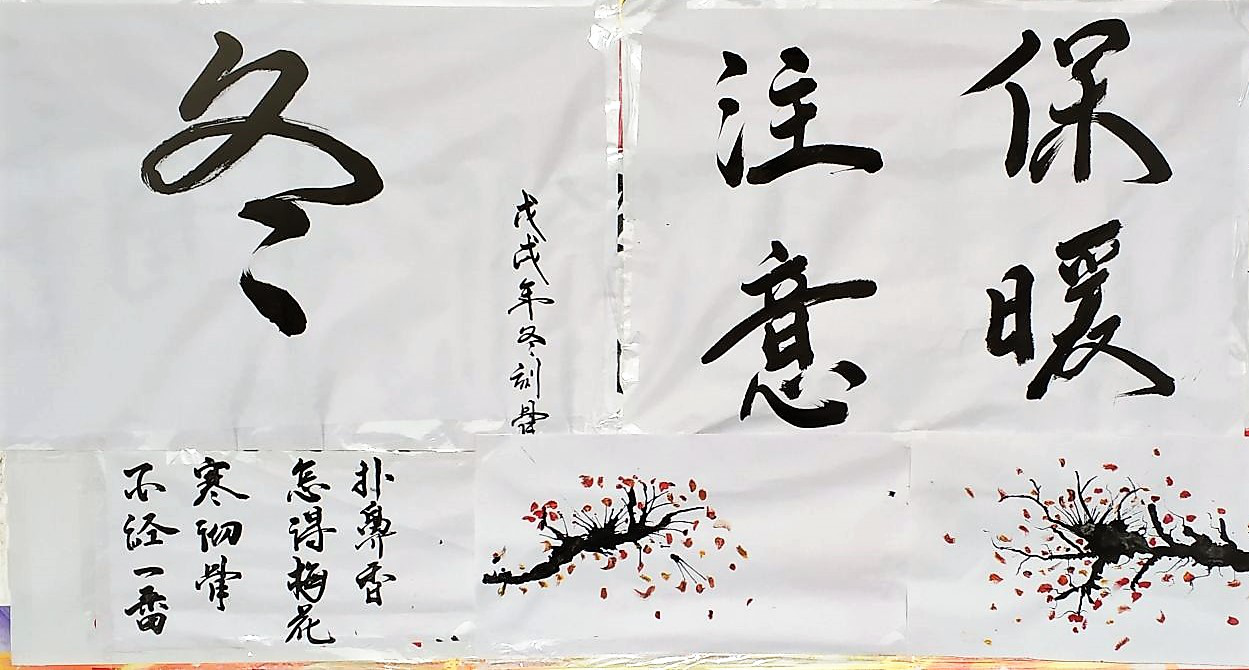 冬
戊戌年冬刻骨
注意
保暖
不经一番
寒彻骨
怎得梅花
扑鼻香